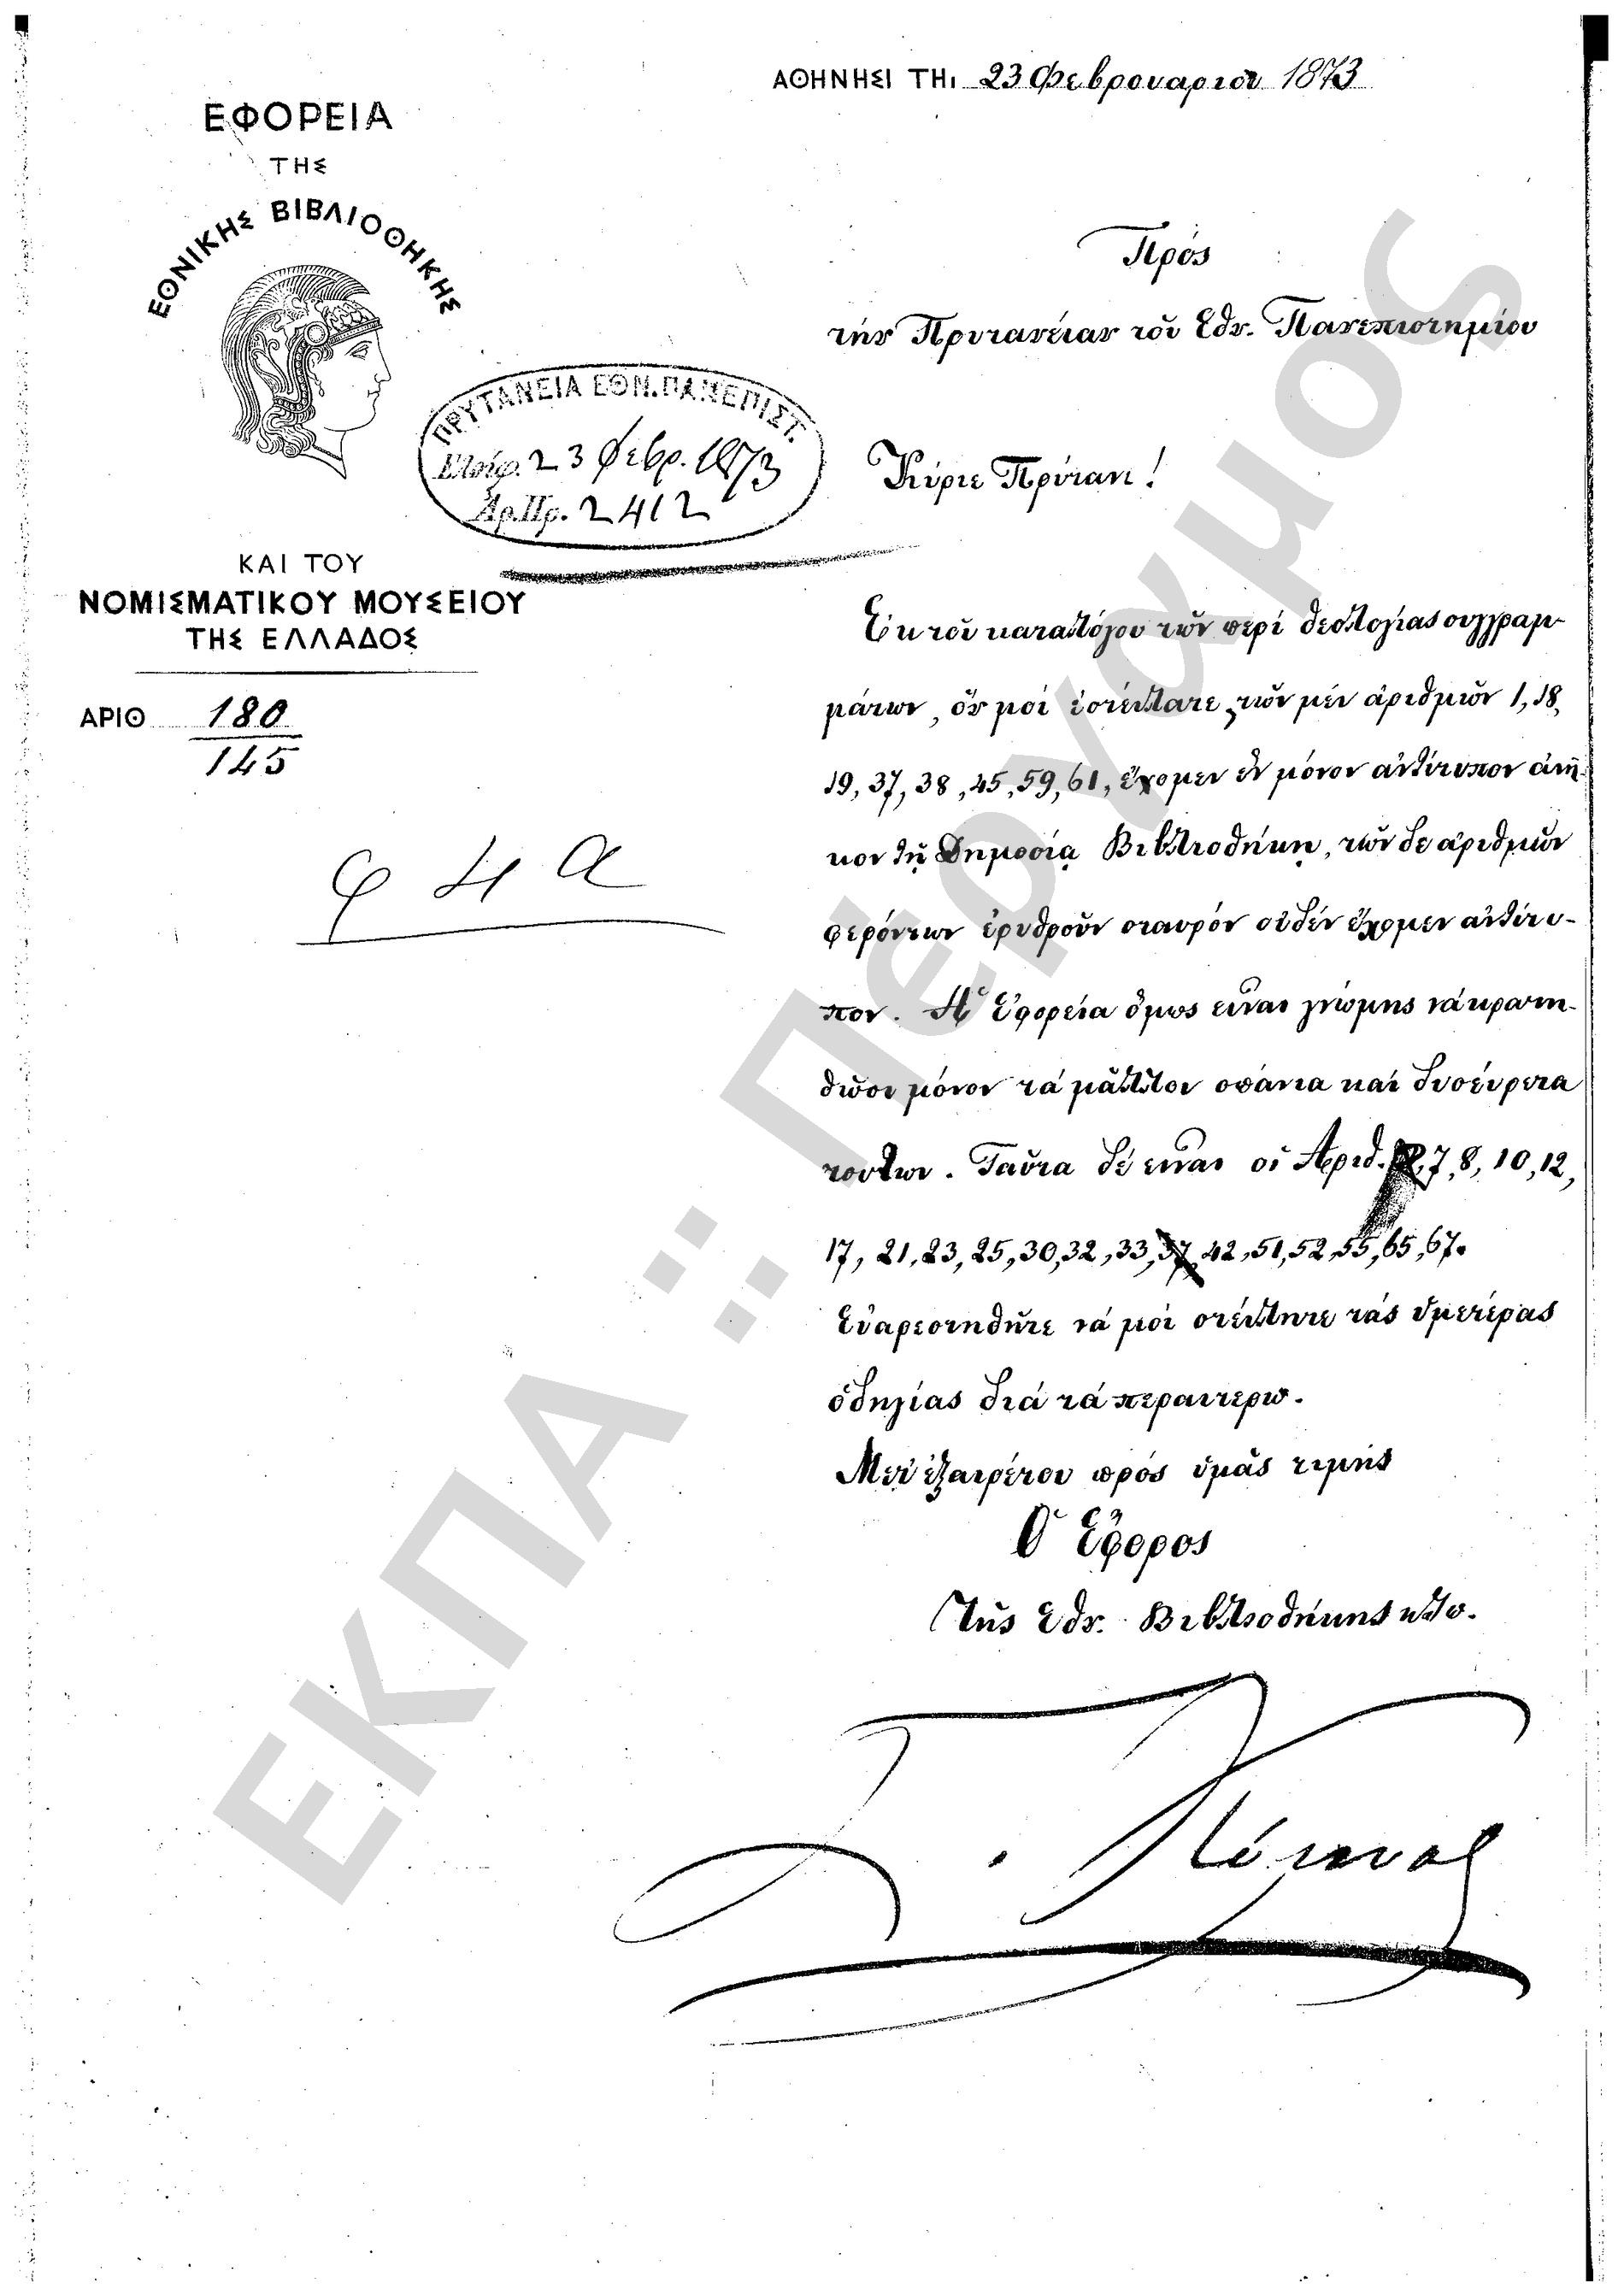 ΑΘΗΝΗΣΙ ΤΗΙ 23 Φεβρουαρίου 1873
ΕΦΟΡΕΙΑ
ΤΗΣ
ΕΘΝΙΚΗΣ ΒΙΒΛΙΟΘΗΚΗΣ
ΚΑΙ ΤΟΥ
ΝΟΜΙΣΜΑΤΙΚΟΥ ΜΟΥΣΕΙΟΥ
ΤΗΣ ΕΛΛΑΔΟΣ
ΑΡΙΘ 180
145
ΠΡΥΤΑΝΕΙΑ ΕΘΝ. ΠΑΝΕΠΙΣΤ.
23 Φεβρ. 1873
Ἀρ.Πρ. 2412
φ 4 α
Πρός
τήν Πρυτανείαν τοῦ Ἐθν. Πανεπιστημίου
Κύριε Πρύτανι!
Ἐκ τοῦ καταλόγου τῶν περί θεολογίας συγγραμ-
μάτων, ὅν μοί ἐστείλατε, τῶν μέν ἀριθμῶν 1, 18,
19, 37, 38, 45, 59, 61, ἔχομεν ἕν μόνον ἀντίτυπον ἀνῆ-
κον τῇ Δημοσίᾳ Βιβλιοθήκῃ, τῶν δε ἀριθμῶν
φερόντων ἐρυθροῦν σταυρόν οὐδέν ἔχομεν ἀντίτυ-
πον. Ἡ Ἐφορεία ὅμως εἶναι γνώμης νά κρατη-
θῶσι μόνον τά μᾶλλον σπάνια καί δυσεύρετα
τούτων. Ταῦτα δέ εἶναι οἱ Ἀριθ. 7, 8, 10, 12,
17, 21, 23, 25, 30, 32, 33, 37, 42, 51, 52, 55, 65, 67.
Εὐαρεστηθῆτε νά μοί στείλητε τάς ὑμετέρας
ὁδηγίας διά τά περαιτερω.
Μετ' ἐξαιρέτου πρός ὑμᾶς τιμῆς
Ὁ Ἔφορος
Τῆς Ἐθν. Βιβλιοθήκης κλπ.
ΕΚΠΑ :: Πέργαμος